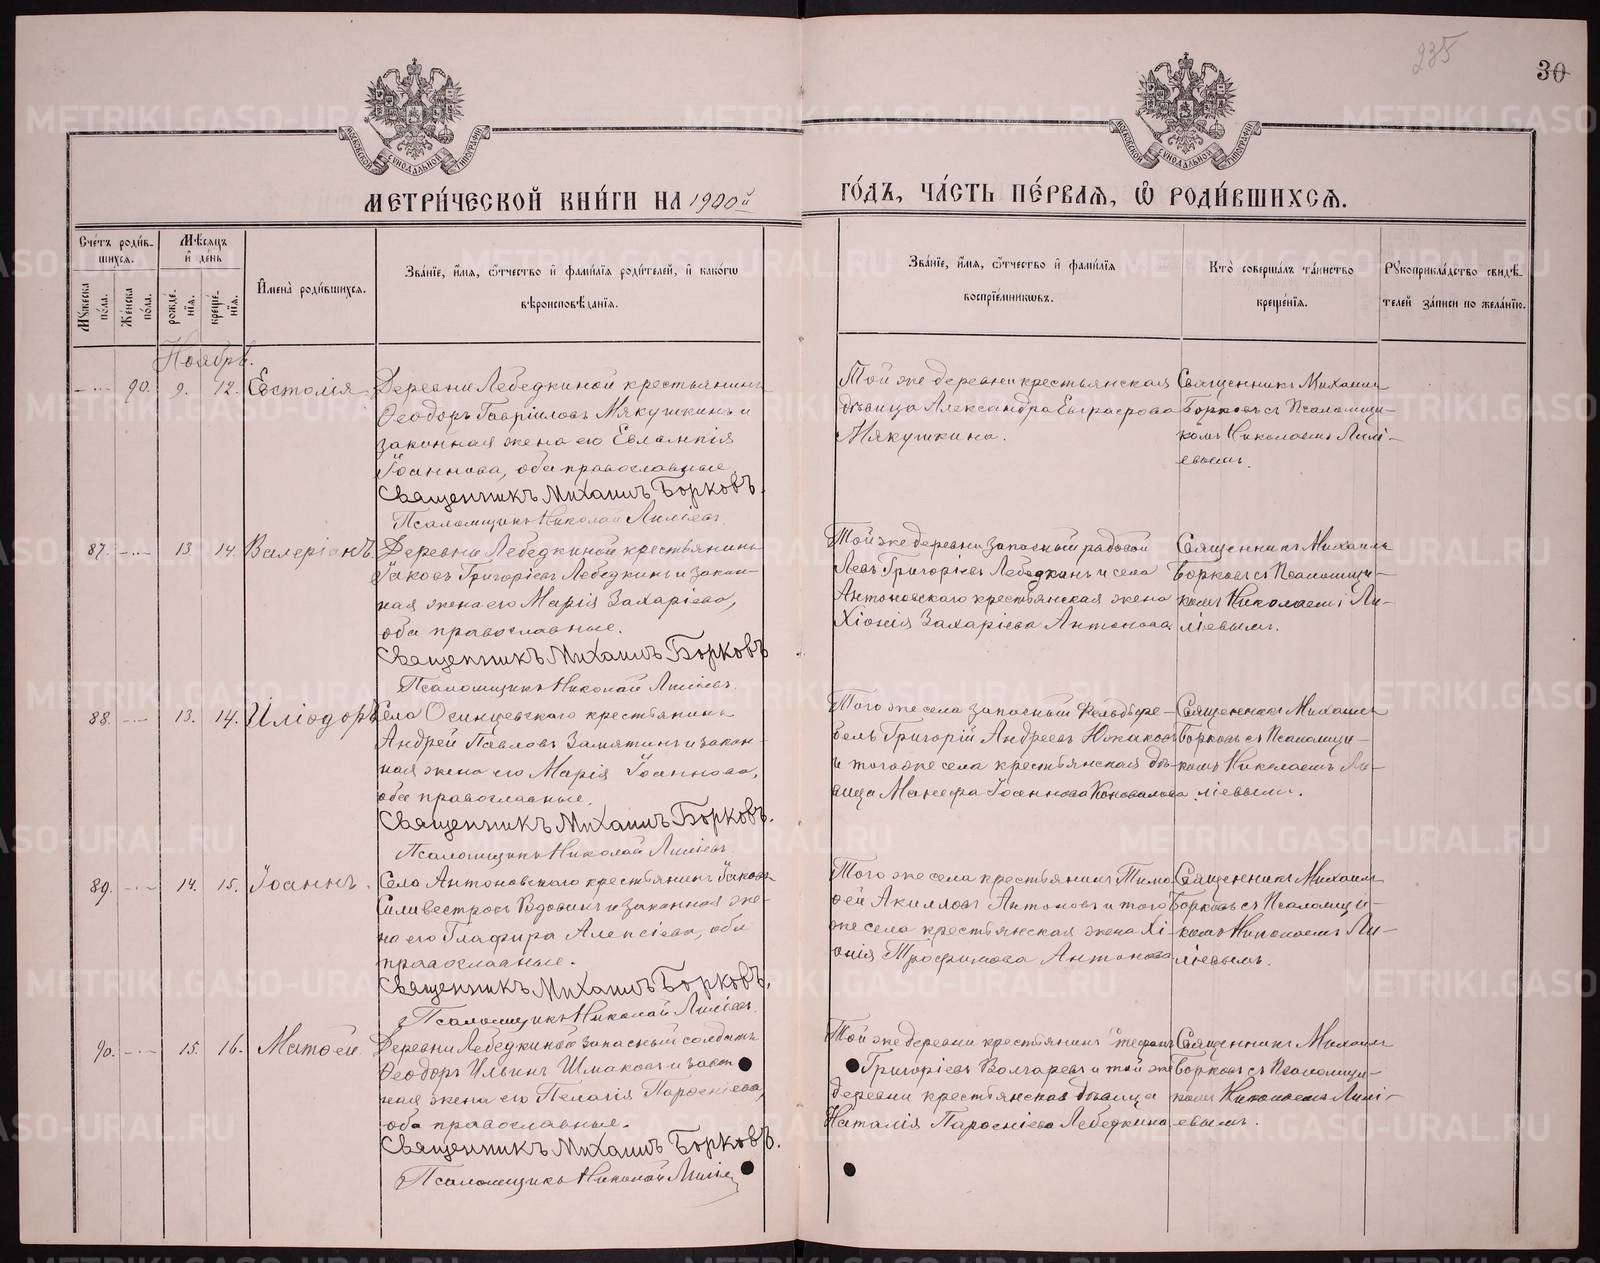 235
30
МОСКОВСКОЙ СѴНОДАЛЬНОЙ ТИПОГРАФІИ
МОСКОВСКОЙ СѴНОДАЛЬНОЙ ТИПОГРАФІИ
МЕТРИ́ЧЕСКОЙ КНИ́ГИ НА 1900й ГО́ДЪ, ЧА́СТЬ ПЕ́РВАЯ, Ѽ РОДИ́ВШИХСЯ.
Сче́тъ роди́вшихся.
Му́жеска по́ла.
Же́нска по́ла.
Мѣ́сяцъ и҆ де́нь
рожде́нїя.
креще́нїя.
И҆мена̀ роди́вшихся.
Зва́нїе, и҆́мя, ѻ҆́тчество и҆ фами́лїя роди́телей, и҆ како́гѡ вѣроисповѣ́данїя.
Зва́нїе, и҆́мя, ѻ҆́тчество и҆ фами́лїя воспрїе́мникѡвъ.
Кто̀ соверша́лъ та́инство креще́нїя.
Рꙋкоприкла́дство свидѣ́телей за́писи по жела́нїю.
Ноябрь.
90. 9. 12. Евстолія.
Деревни Лебедкиной крестьянинъ
Ѳеодоръ Гавріиловъ Мякушкинъ и
законная жена его Евлампія
Іоаннова, оба православные.
Священникъ Михаилъ Борковъ.
Псаломщикъ Николай Лиліевъ.
Той же деревни крестьянская
дѣвица Александра Евграфова
Мякушкина.
Священникъ Михаилъ
Борковъ съ Псаломщи-
комъ Николаемъ Лилі-
евымъ.
87. 13. 14. Валеріанъ.
Деревни Лебедкиной крестьянинъ
Іаковъ Григоріевъ Лебедкинъ и закон-
ная жена его Марія Захаріева,
оба православные.
Священникъ Михаилъ Борковъ
Псаломщикъ Николай Лиліевъ.
Той же деревни запасный рядовой
Левъ Григорьевъ Лебедкинъ и села
Антоновскаго крестьянская жена
Хіонія Захаріева Антонова.
Священникъ Михаилъ
Борковъ съ Псаломщи-
комъ Николаемъ Ли-
ліевымъ.
88. 13. 14. Иліодоръ
Села Осинцевскаго крестьянинъ
Андрей Павловъ Замятинъ и закон-
ная жена его Марія Іоаннова,
оба православные.
Священникъ Михаилъ Борковъ.
Псаломщикъ Николай Лиліевъ
Того же села запасный фельдфе-
бель Григорій Андреевъ Южаковъ
и того же села крестьянская дѣ-
вица Манефа Іоаннова Коновалова.
Священникъ Михаилъ
Борковъ съ Псаломщи-
комъ Николаемъ Ли-
ліевымъ.
89. 14. 15. Іоаннъ.
Села Антоновскаго крестьянинъ Іаковъ
Силивестровъ Вдовинъ и законная же-
на его Глафира Алексіева, оба
православные.
Священникъ Михаилъ Борковъ.
Псаломщикъ Николай Лиліевъ.
Того же села крестьянинъ Тимо-
ѳей Акилловъ Антоновъ и того
же села крестьянская жена Хі-
онія Трофимова Антонова
Священникъ Михаилъ
Борковъ съ Псаломщи-
комъ Николаемъ Ли-
ліевымъ.
90. 15. 16. Матѳей
Деревни Лебедкиной запасный солдатъ
Ѳеодоръ Ильинъ Шмаковъ и закон-
ная жена его Пелагія Парѳеніева,
оба православные.
Священникъ Михаилъ Борковъ.
Псаломщикъ Николай Лиліевъ
Той же деревни крестьянинъ Стефанъ
Григоріевъ Волгаревъ и той же
деревни крестьянская дѣвица
Наталія Парѳеніева Лебедкина
Священникъ Михаилъ
Борковъ съ Псаломщи-
комъ Николаемъ Лилі-
евымъ.
METRIKI.GASO-URAL.RU